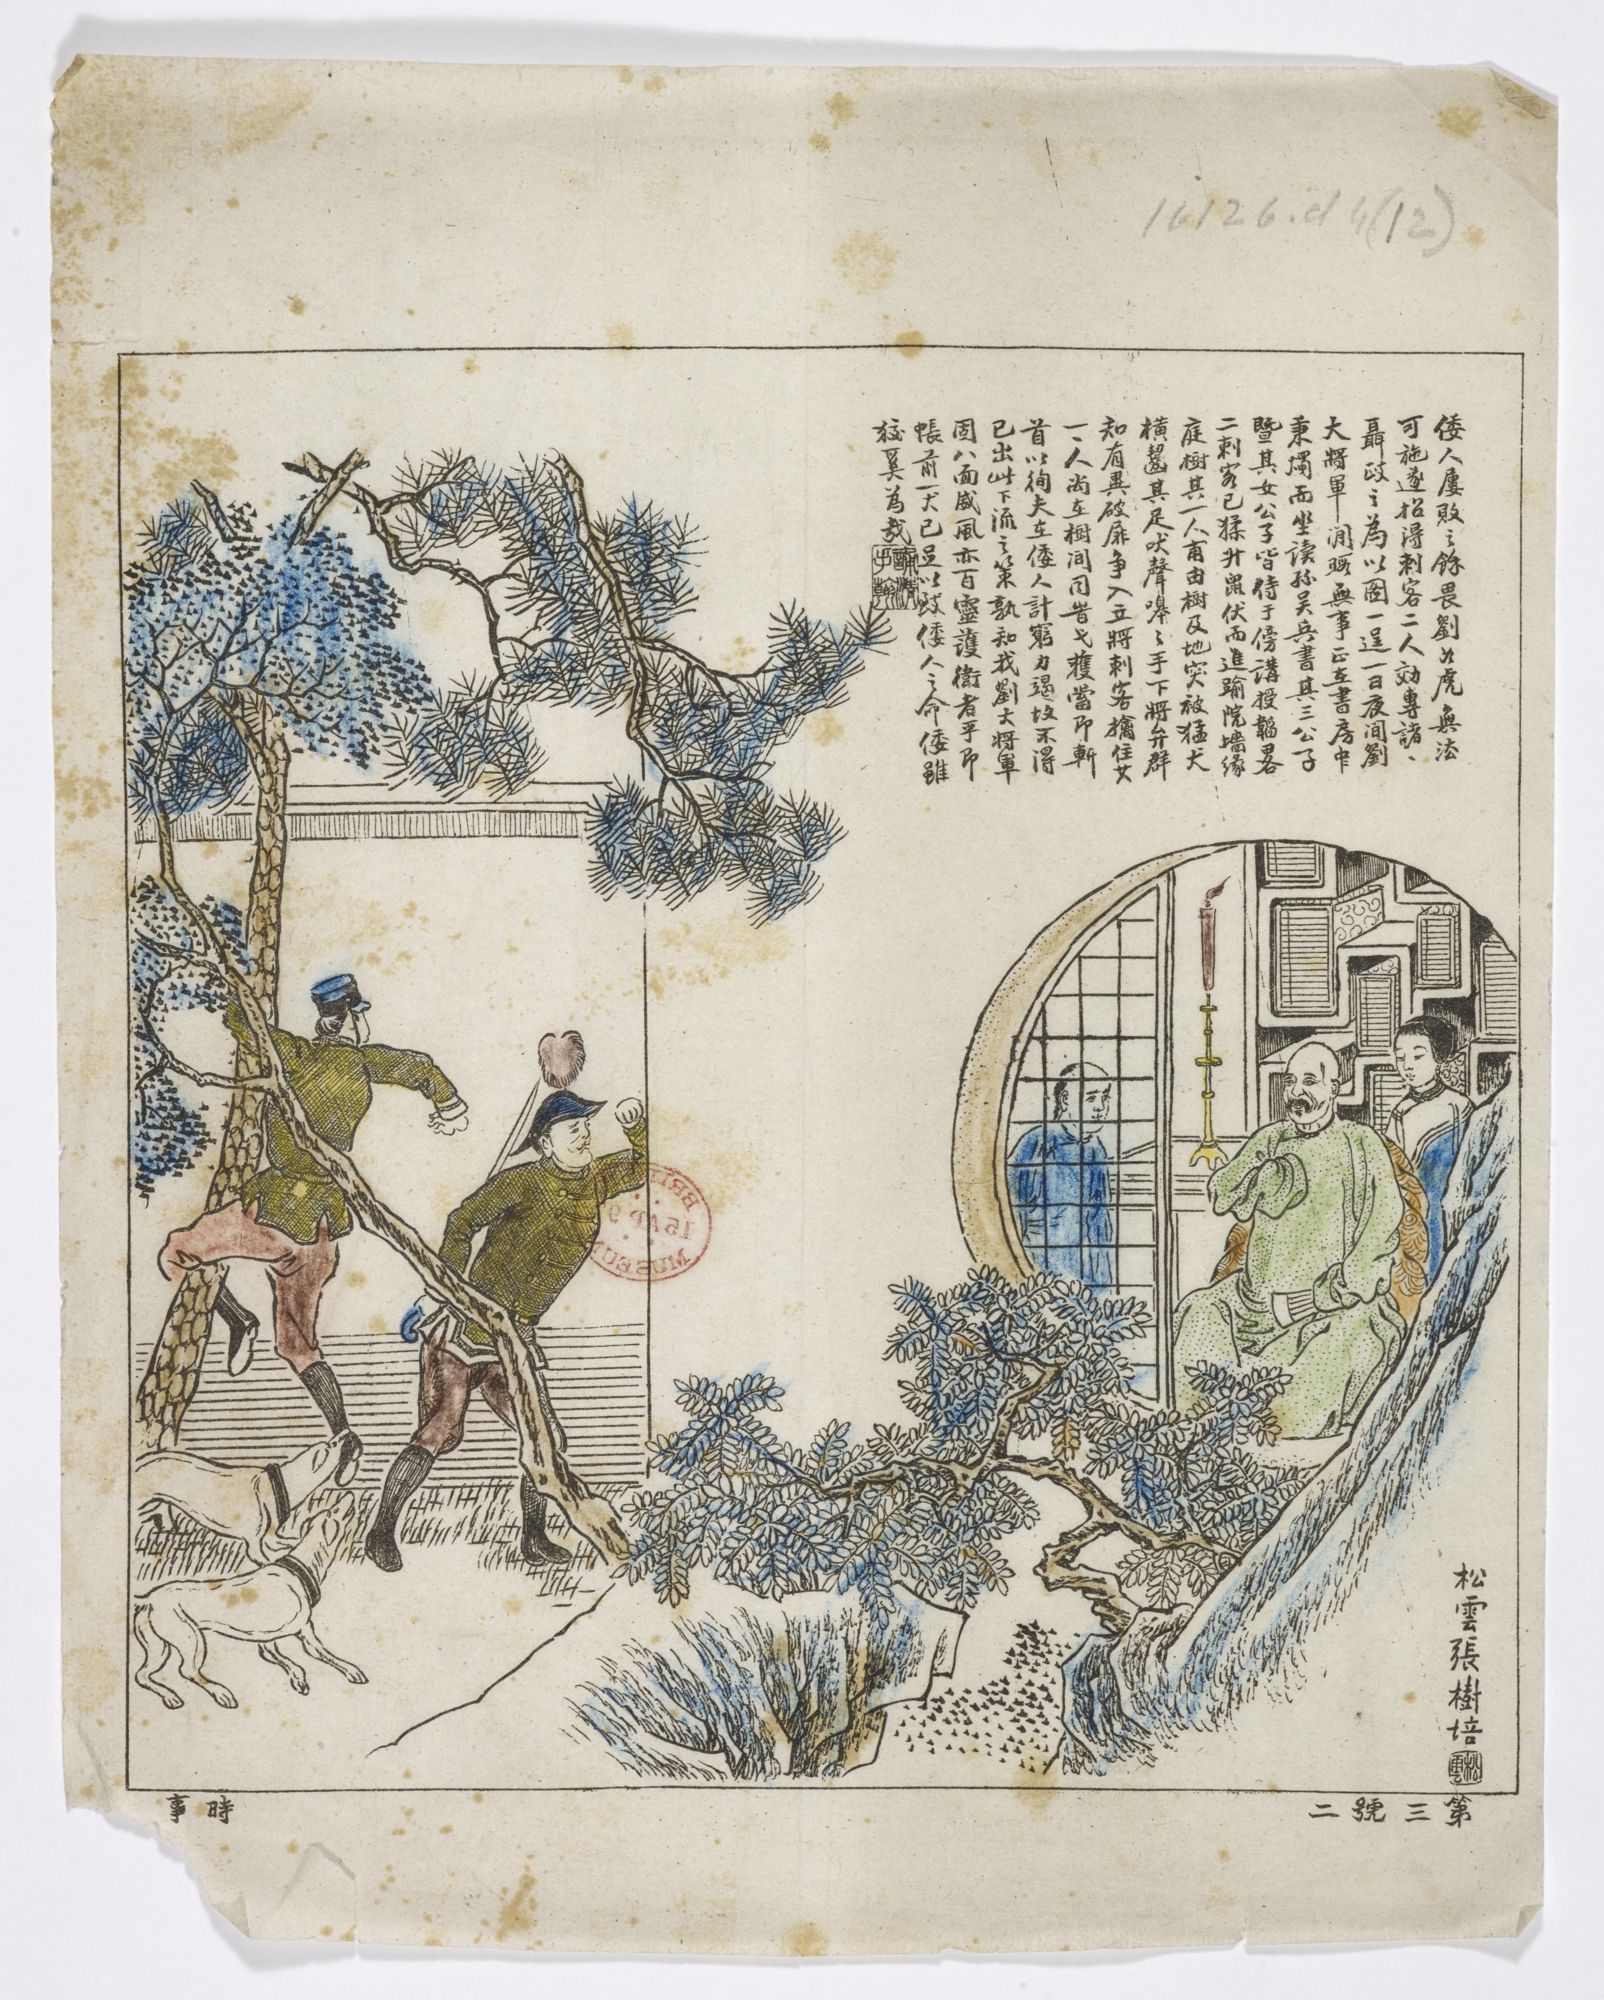 16126.d4(12)
倭人屢敗之餘畏劉如虎無法
可施遂招得刺客二人効專諸、
聶政之為以圖一逞一日夜間劉
大將軍閒暇無事正在書房中
秉燭而坐讀孫吳兵書其三公子
暨其女公子皆侍于傍講授韜畧
二刺客已猱升鼠伏而進踰院墻緣
庭樹其一人甫由樹及地突被猛犬
橫齧其足吠聲嘷々手下將弁群
知有異破扉爭入立將刺客擒住其
一人尚在樹間同昔弋獲當即斬
首以徇夫在倭人計窮力竭故不得
已出此下流之策孰知我劉大將軍
固八面威風亦百靈護衛者乎即
帳前一犬已足以致倭人之命倭雖
狡奚為哉
松雲張樹培
松雲
第三號二
時事
BRITISH MUSEUM